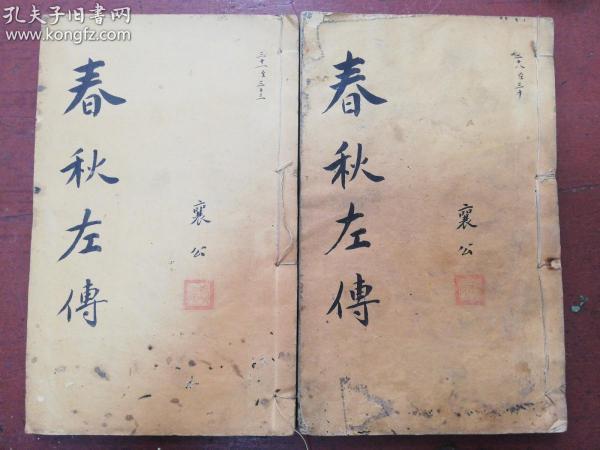 孔夫子旧书网
www.kongfz.com
春秋左傳
襄公
三十一至三十三
春秋左傳
襄公